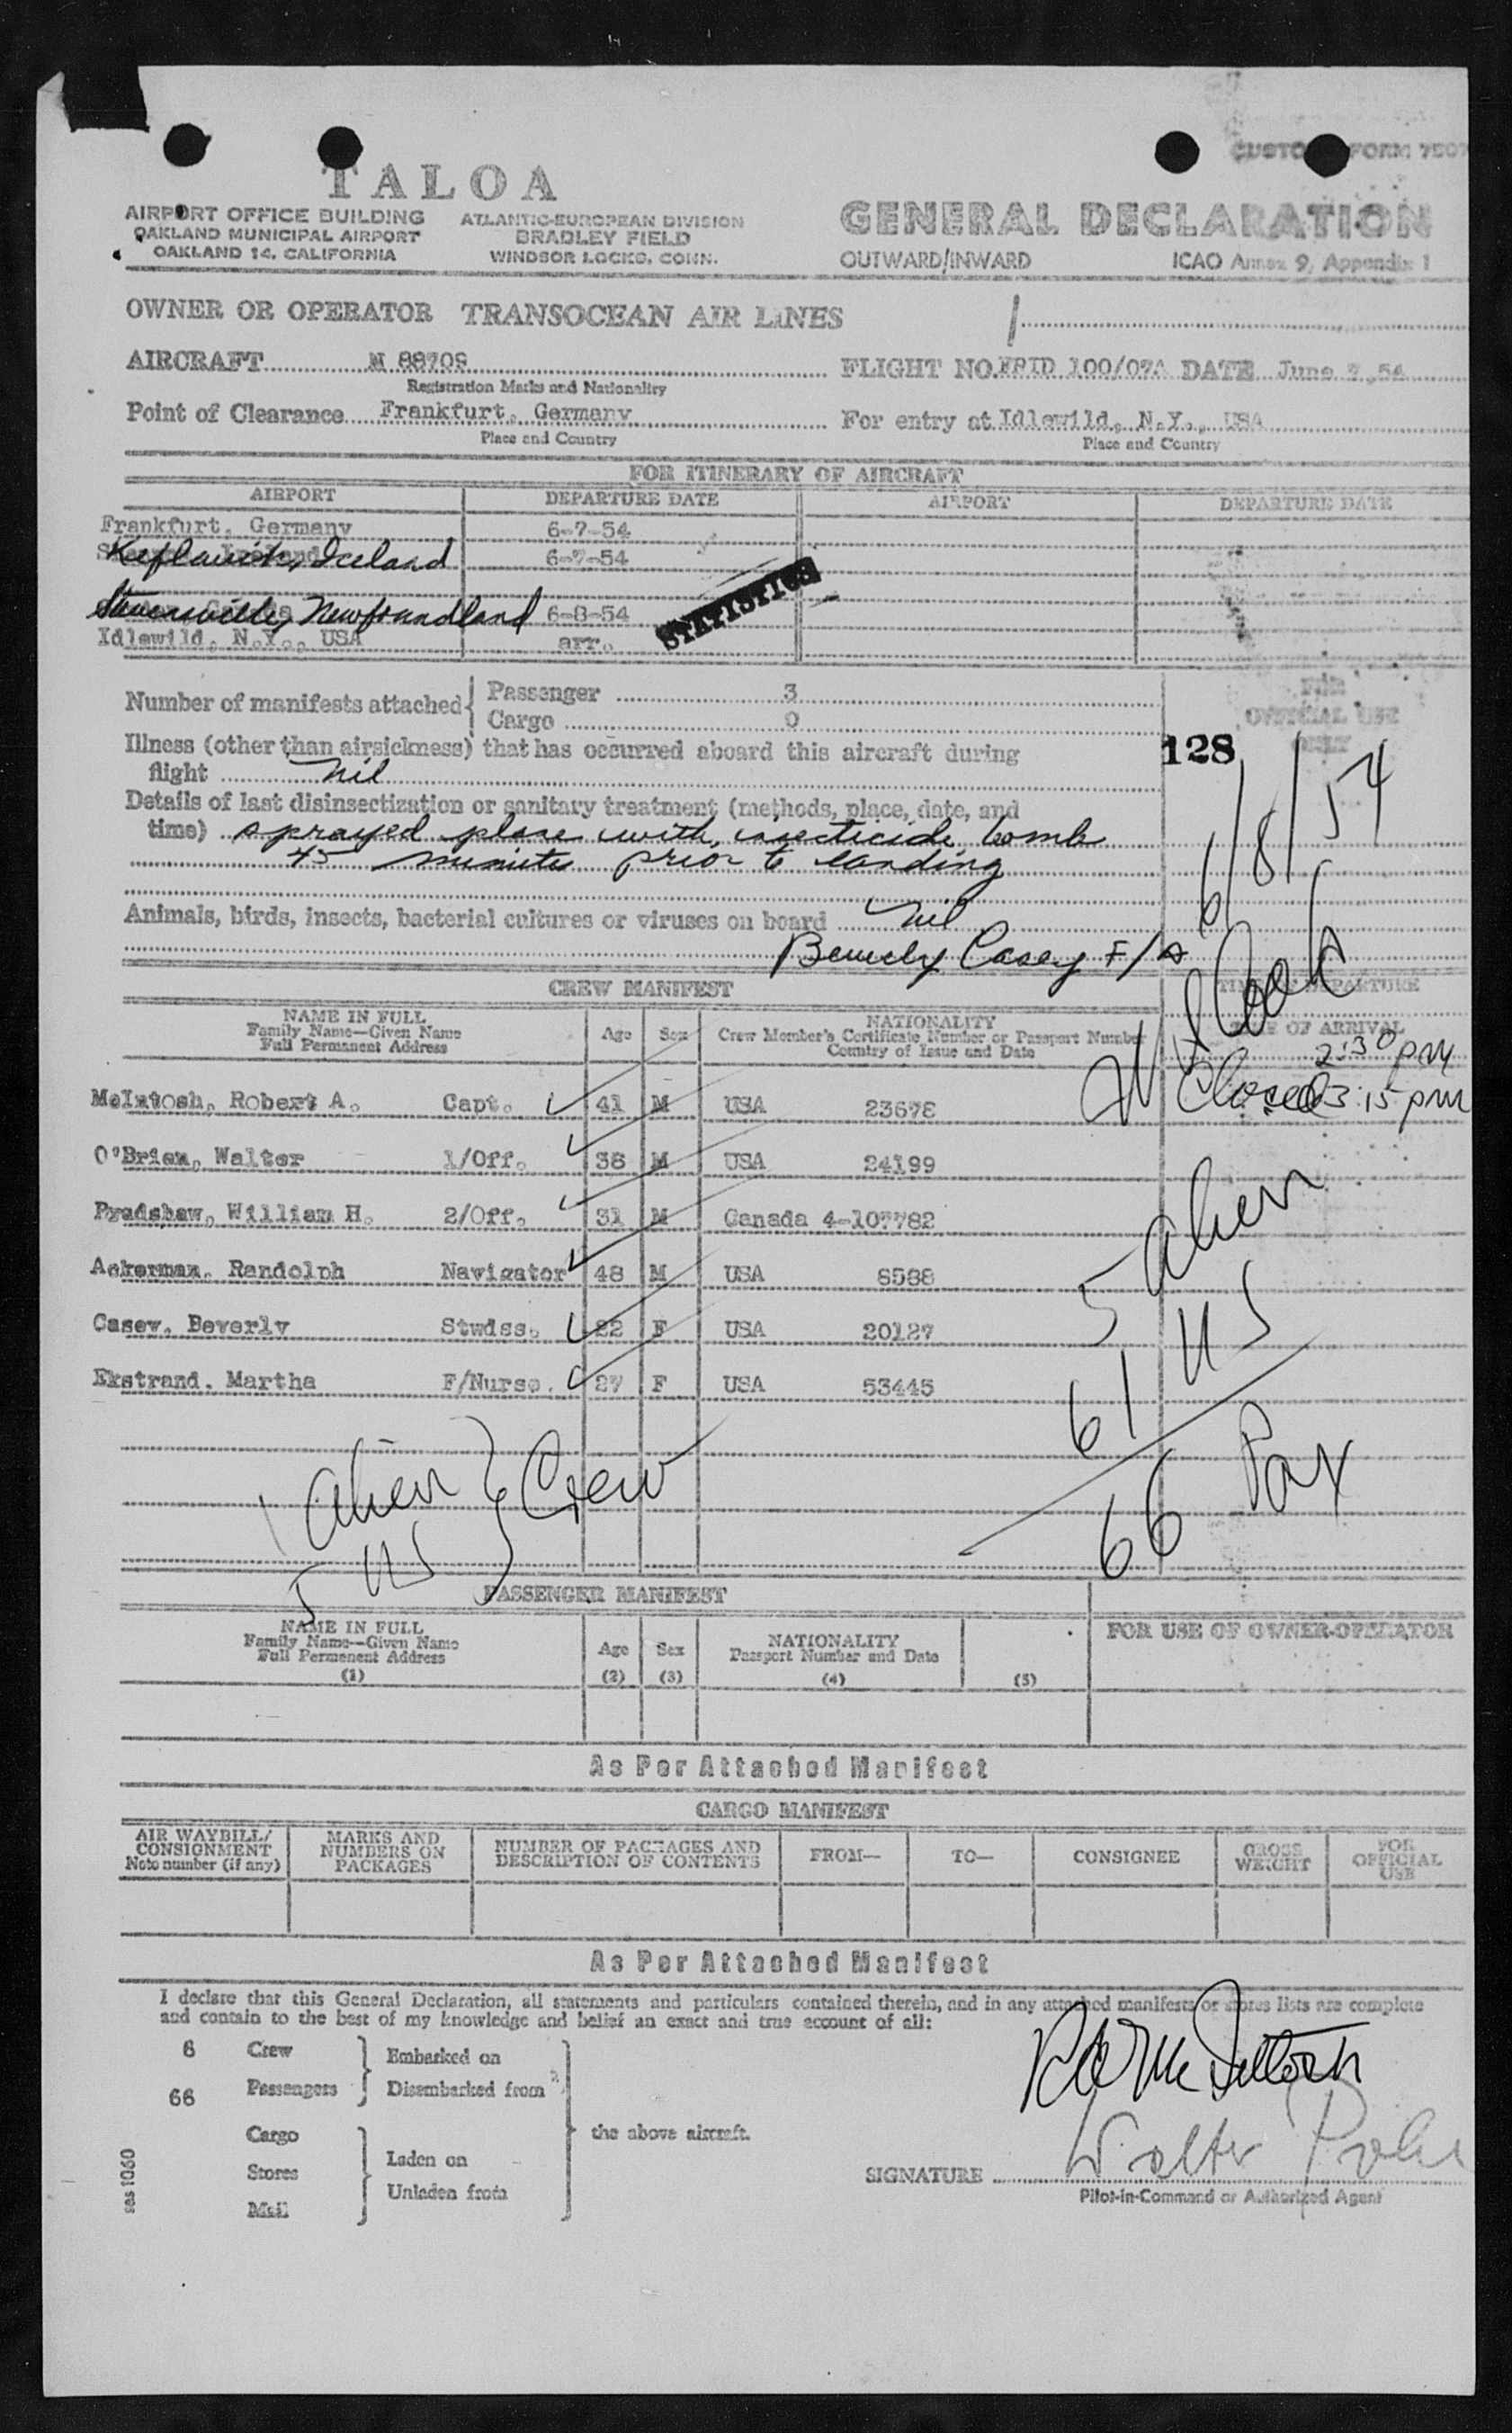 CUSTOMS FORM 7507
TALOA
AIRPORT OFFICE BUILDING
OAKLAND MUNICIPAL AIRPORT
OAKLAND 14, CALIFORNIA
ATLANTIC-EUROPEAN DIVISION
BRADLEY FIELD
WINDSOR LOCKS, CONN.
GENERAL DECLARATION
OUTWARD/INWARD ICAO Annex 9, Appendix 1
OWNER OR OPERATOR TRANSOCEAN AIR LINES
AIRCRAFT N 88709 FLIGHT NO. 100/07A DATE June 7, 54
Registration Marks and Nationality
Point of Clearance Frankfurt, Germany For entry at Idlewild, N.Y., USA
Place and Country Place and Country
FOR ITINERARY OF AIRCRAFT
AIRPORT DEPARTURE DATE AIRPORT DEPARTURE DATE
Frankfurt, Germany 6-7-54
Keflavick, Iceland 6-7-54
STATISTICS
Newfoundland 6-8-54
Idlewild, N.Y., USA arr.
Number of manifests attached Passenger 3
Cargo 0
FOR OFFICIAL USE ONLY
128
6/8/54
Illness (other than airsickness) that has occurred aboard this aircraft during
flight nil
Details of last disinsectization or sanitary treatment (methods, place, date, and
time) sprayed plane with insecticide bomb
45 minutes prior to landing
Animals, birds, insects, bacterial cultures or viruses on board nil
Beverly Casey F/A
CREW MANIFEST
TIME OF DEPARTURE
TIME OF ARRIVAL
2:30 pm
Closed 3:15 pm
NAME IN FULL
Family Name—Given Name
Full Permanent Address
Age Sex
NATIONALITY
Crew Member's Certificate Number or Passport Number
Country of Issue and Date
McIntosh, Robert A. Capt. 41 M USA 23678
O'Brien, Walter 1/Off. 36 M USA 24199
Bradshaw, William H. 2/Off. 31 M Canada 4-107782
Ackerman, Randolph Navigator 48 M USA 8588
Casey, Beverly Stwdss. 22 F USA 20127
Ekstrand, Martha F/Nurse. 27 F USA 53445
5 alien
61 US
66 Pax
1 alien
5 US
Crew
PASSENGER MANIFEST
NAME IN FULL
Family Name—Given Name
Full Permanent Address
(1)
Age
(2)
Sex
(3)
NATIONALITY
Passport Number and Date
(4)
(5)
FOR USE OF OWNER-OPERATOR
As Per Attached Manifest
CARGO MANIFEST
AIR WAYBILL/
CONSIGNMENT
Note number (if any)
MARKS AND
NUMBERS ON
PACKAGES
NUMBER OF PACKAGES AND
DESCRIPTION OF CONTENTS
FROM—
TO—
CONSIGNEE
GROSS
WEIGHT
FOR
OFFICIAL
USE
As Per Attached Manifest
I declare that this General Declaration, all statements and particulars contained therein, and in any attached manifests or stores lists are complete
and contain to the best of my knowledge and belief an exact and true account of all:
6 Crew
66 Passengers
Embarked on
Disembarked from
Cargo
Stores
Mail
Laden on
Unladen from
the above aircraft.
RA McIntosh
Walter
SIGNATURE
Pilot-in-Command or Authorized Agent
sas 1060